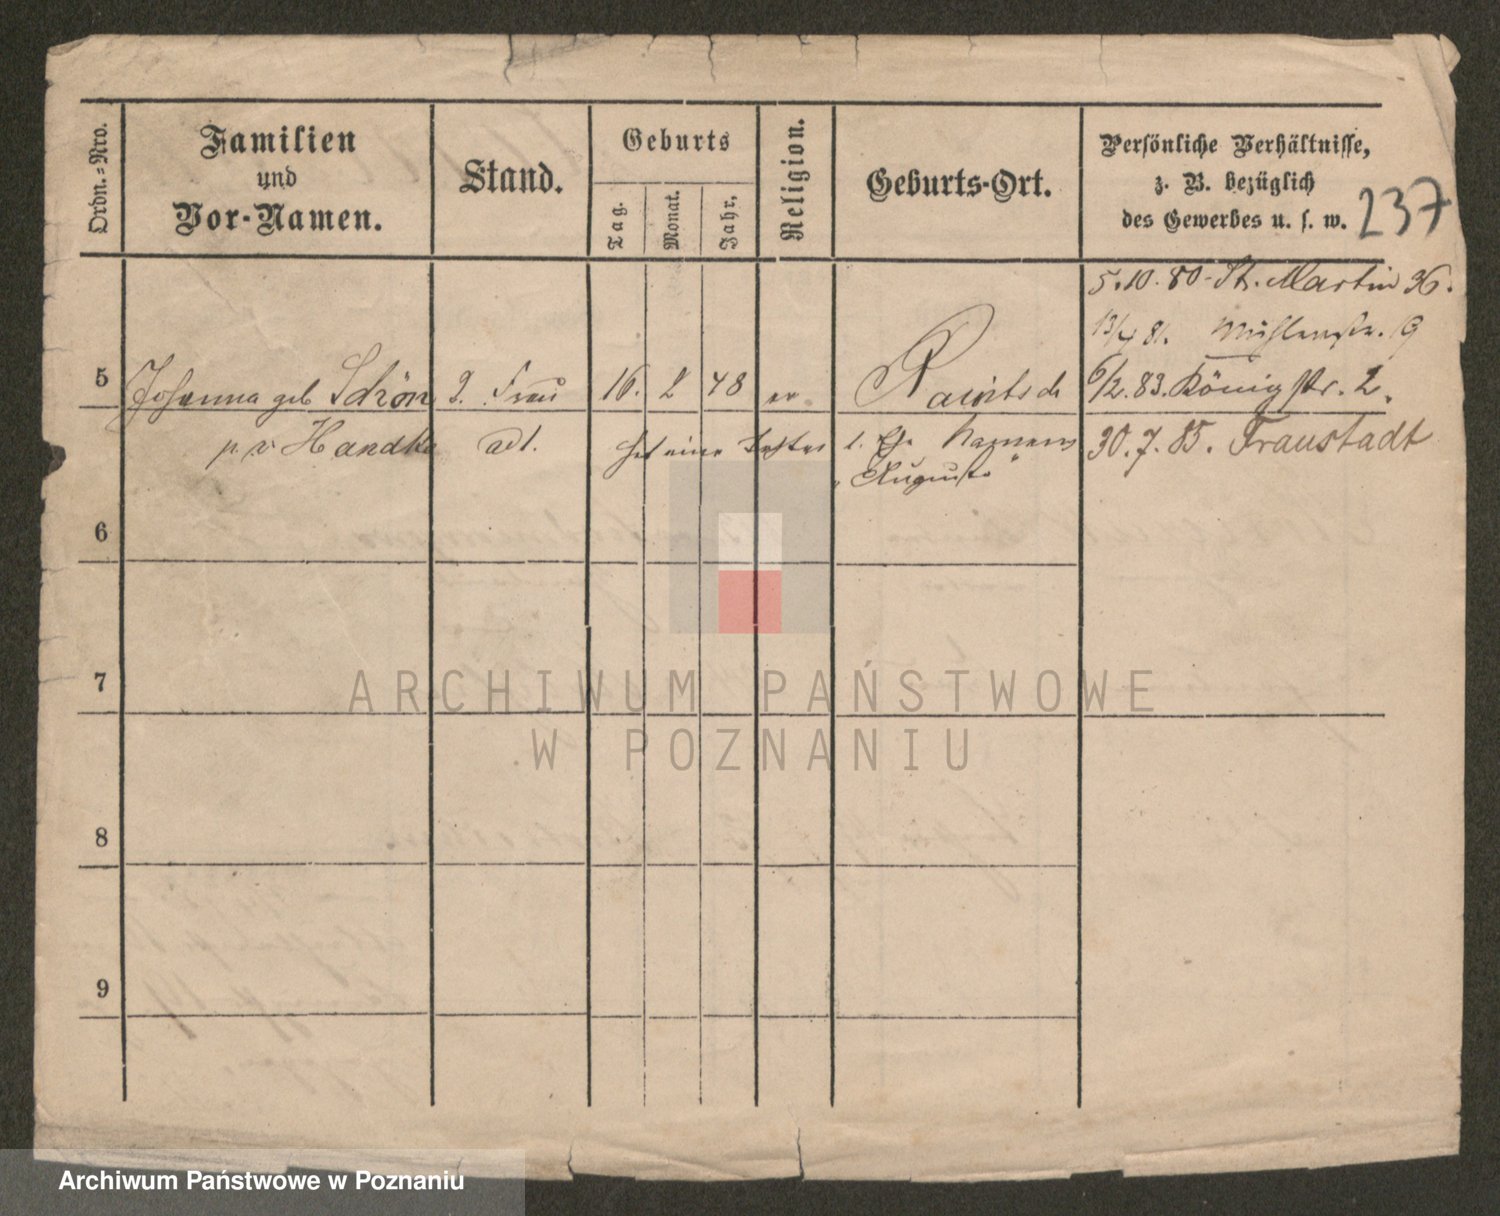 Ordn.-Nro.
Familien
und
Vor-Namen.
Stand.
Geburts
Tag.
Monat.
Jahr.
Religion.
Geburts-Ort.
Persönliche Verhältnisse,
z. B. bezüglich
des Gewerbes u. s. w.
237
5.10.80 - St. Martin 36.
13/4 81. Mühlenstr. 9
5 Johanna geb Schön 2. Frau 16. 2 48 ev. Rawitsch 6/2.83. Königstr. 2.
Handke hat eine Tochter 1. Ehe Namens 30.7.85. Fraustadt
"Auguste"
6
7
ARCHIWUM PAŃSTWOWE
W POZNANIU
8
9
Archiwum Państwowe w Poznaniu